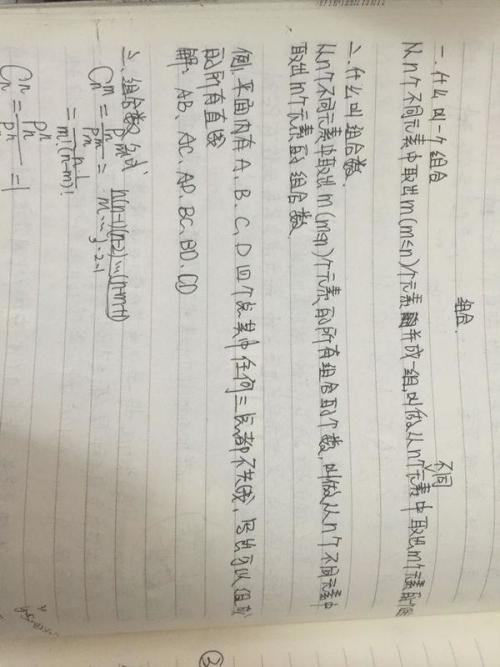 组合.
一、什么叫一个组合
不同
从n个不同元素中取出m(m≤n)个元素并成一组,叫做从n个元素中取出m个元素的
二、什么叫组合数.
从n个不同元素中取出m(m≤n)个元素的所有组合的个数,叫做从n个不同元素中
取出m个元素的组合数.
例1.平面内有A、B、C、D四个点,其中任何三点都不共线,写出可以组成
的所有直线
解:AB、AC、AD、BC、BD、CD
三、组合数公式
Cₙᵐ = Pₙᵐ/Pₘᵐ = n(n-1)(n-2)…(n-m+1)/m…3·2·1
= n!/m!(n-m)!
Cₙⁿ = Pₙⁿ/Pₙⁿ = 1
③